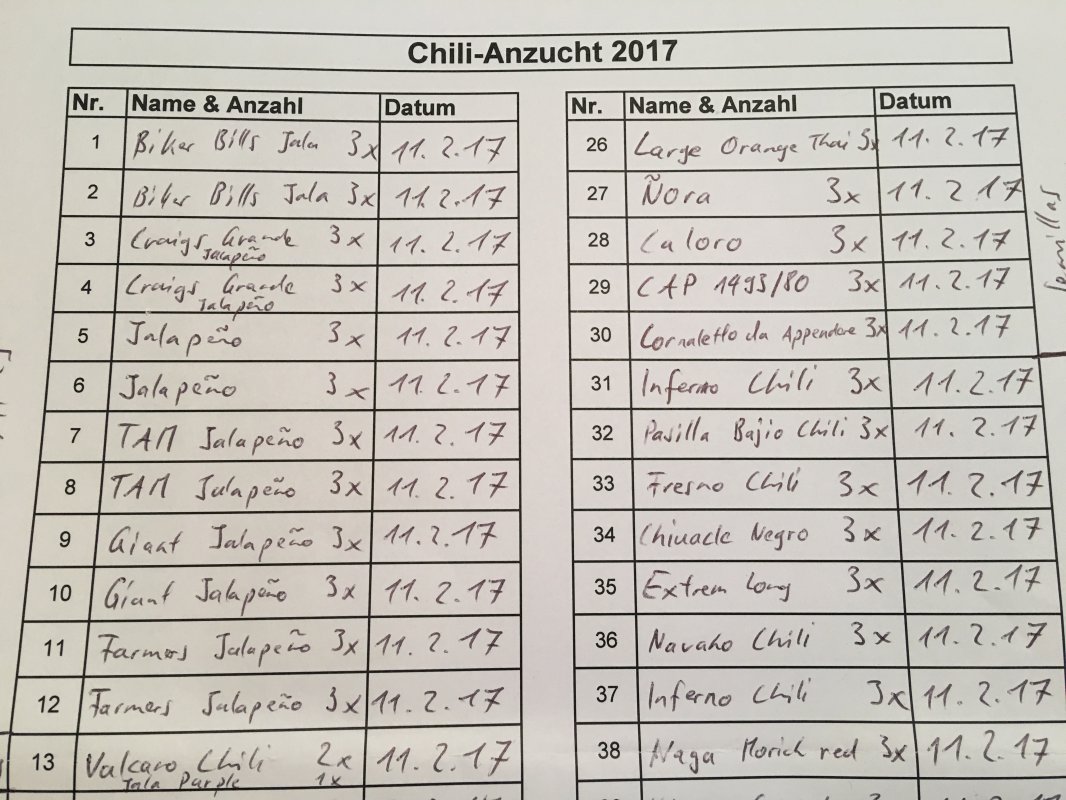 Chili-Anzucht 2017
Nr. Name & Anzahl Datum
1 Biker Bills Jala 3x 11.2.17
2 Biker Bills Jala 3x 11.2.17
3 Craigs Grande 3x 11.2.17
Jalapeño
4 Craigs Grande 3x 11.2.17
Jalapeño
5 Jalapeño 3x 11.2.17
6 Jalapeño 3x 11.2.17
7 TAM Jalapeño 3x 11.2.17
8 TAM Jalapeño 3x 11.2.17
9 Giant Jalapeño 3x 11.2.17
10 Giant Jalapeño 3x 11.2.17
11 Farmers Jalapeño 3x 11.2.17
12 Farmers Jalapeño 3x 11.2.17
13 Vulcano Chili 2x 11.2.17
Jala Purple 1x
Nr. Name & Anzahl Datum
26 Large Orange Thai 11.2.17
27 Ñora 3x 11.2.17
28 Caloro 3x 11.2.17
29 CAP 1493/80 3x 11.2.17
30 Cornaletto da Appendere 3x 11.2.17
31 Inferno Chili 3x 11.2.17
32 Pasilla Bajio Chili 3x 11.2.17
33 Fresno Chili 3x 11.2.17
34 Chiuacle Negro 3x 11.2.17
35 Extrem Long 3x 11.2.17
36 Navaho Chili 3x 11.2.17
37 Inferno Chili 3x 11.2.17
38 Naga Morich red 3x 11.2.17
Semillas